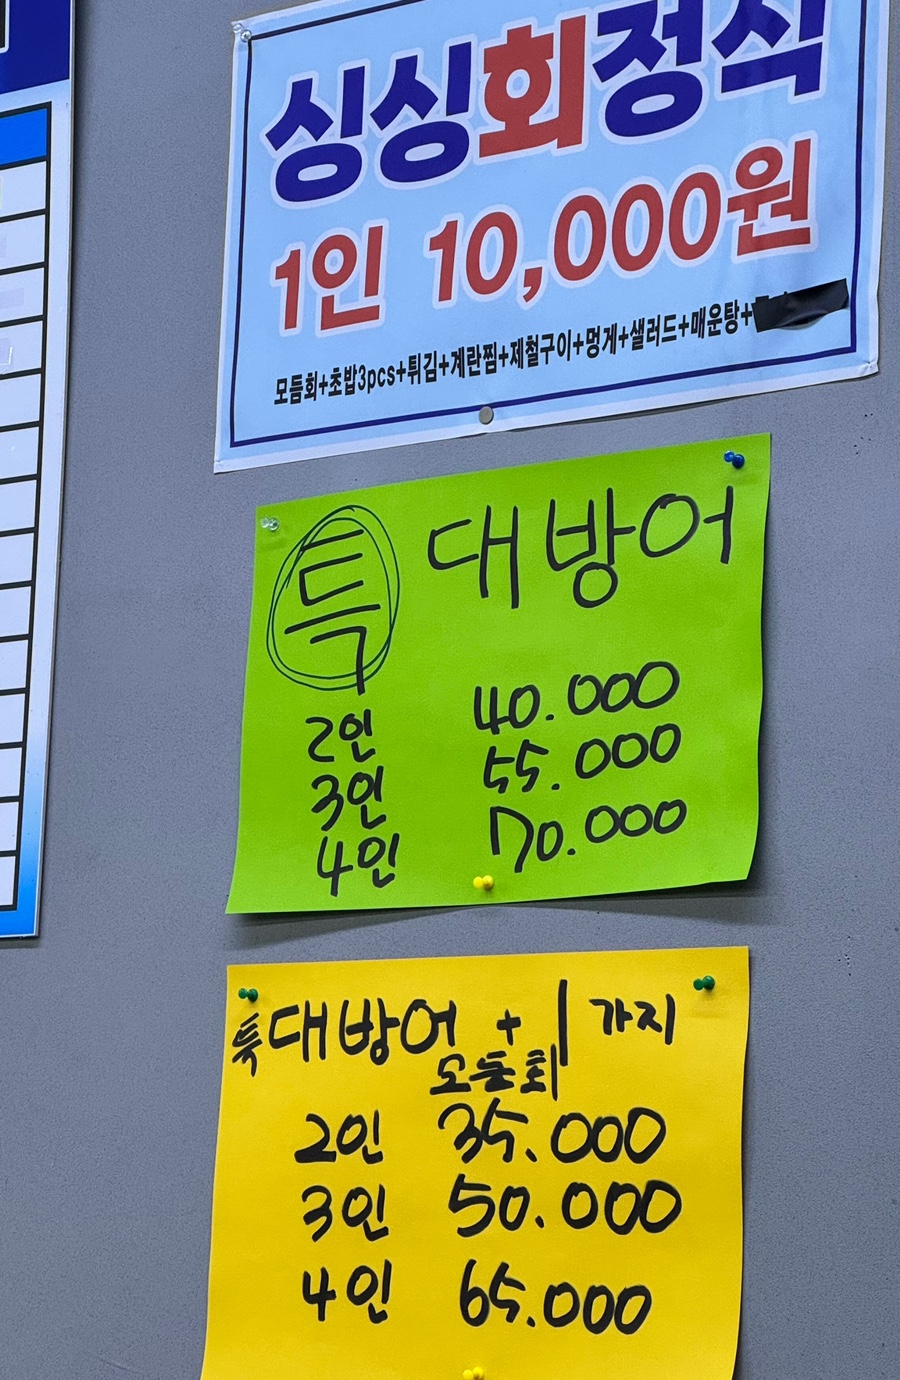 싱싱회정식
1인 10,000원
모듬회+초밥3pcs+튀김+계란찜+제철구이+멍게+샐러드+매운탕+
특 대방어
2인 40.000
3인 55.000
4인 70.000
특대방어 + 1가지
모듬회
2인 35.000
3인 50.000
4인 65.000